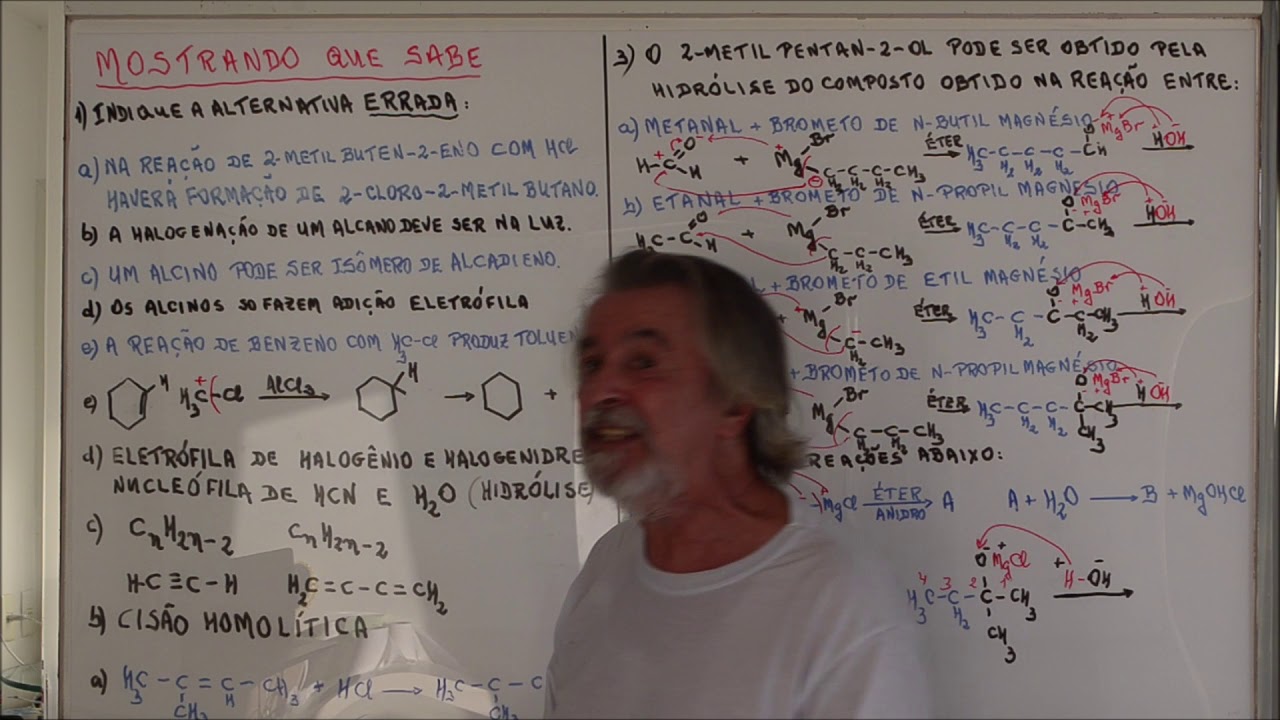 MOSTRANDO QUE SABE
1) INDIQUE A ALTERNATIVA ERRADA:
a) NA REAÇÃO DE 2-METILBUTEN-2-ENO COM HCl
HAVERÁ FORMAÇÃO DE 2-CLORO-2-METIL BUTANO.
b) A HALOGENAÇÃO DE UM ALCANO DEVE SER NA LUZ.
c) UM ALCINO PODE SER ISÔMERO DE ALCADIENO.
d) OS ALCINOS SO FAZEM ADIÇÃO ELETRÓFILA
e) A REAÇÃO DE BENZENO COM H3C-Cl PRODUZ
e) H H3C + Cl AlCl3 H +
d) ELETRÓFILA DE HALOGÊNIO E
NUCLEÓFILA DE HCN E H2O (HIDRÓLISE)
c) CnH2n-2 CnH2n-2
H-C≡C-H H2C=C-C=CH2
b) CISÃO HOMOLÍTICA
a) H3C-C=C-CH3 + HCl H3C-C-C
H
CH3
3) O 2-METIL PENTAN-2-OL PODE SER OBTIDO PELA
HIDRÓLISE DO COMPOSTO OBTIDO NA REAÇÃO ENTRE:
a) METANAL + BROMETO DE N-BUTIL MAGNÉSIO
H-C O H + Mg Br C-C-C-CH3 ÉTER H3C-C-C-C-C O MgBr HOH
H2 H2 H2
b) ETANAL + BROMETO DE N-PROPIL MAGNÉSIO
H3C-C O H + Mg Br C-C-CH3 ÉTER H3C-C-C-C-CH3 O MgBr HOH
H2 H2
+ BROMETO DE ETIL MAGNÉSIO
+ Mg Br C-CH3 ÉTER H3C-C-C-C-CH3 O MgBr HOH
H2
+ BROMETO DE N-PROPIL MAGNÉSIO
Mg Br C-C-CH3 ÉTER H3C-C-C-C-CH3 O MgBr HOH
H2 H2 CH3
REAÇÕES ABAIXO:
MgCl ÉTER ANIDRO A A + H2O B + MgOHCl
O MgCl H-OH
4 3 2 1
H3C-C-C-CH3
H2
CH3